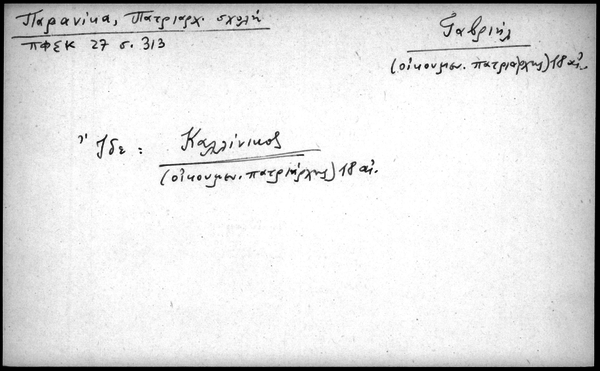 Παρανίκα, Πατριαρχ. σχολή
ΠΦΣΚ 27 σ. 313
Γαβριήλ
(οἰκουμεν. πατριάρχης) 18 αἰ.
Ἴδε : Καλλίνικος
(οἰκουμεν. πατριάρχης) 18 αἰ.